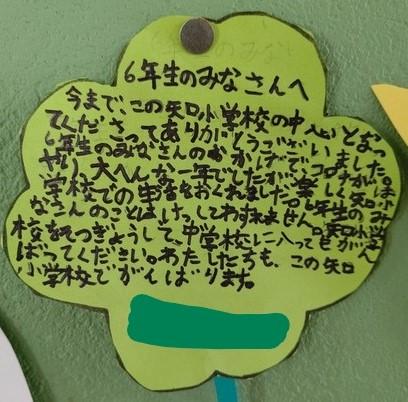 6年生のみなさんへ
今まで、この矢口小学校の中心となっ
てくださってありがとうございました。
6年生のみなさんのおかげで、コロナがは
やり、大へんな一年でしたが、楽しく矢口小
学校での生活をおくれました。6年生のみ
なさんのことはけっしてわすれません。矢口小学
校をそつぎょうして、中学校に入ってもがん
ばってください。わたしたちも、この矢口
小学校でがんばります。